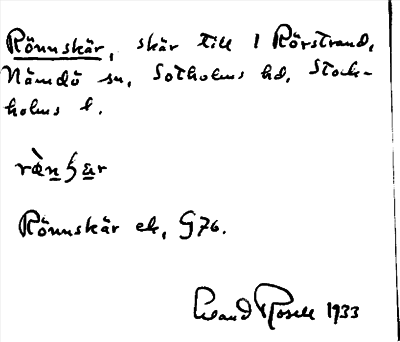 Rönnskär, skär till 1 Rörstrand,
Nämdö sn, Sotholms hd, Stock-
holms l.
Rönnskär ek, G76.
Rosell 1933